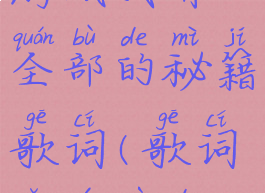 quán bù de mì jí
全部的秘籍
gē cí gē cí
歌词(歌词